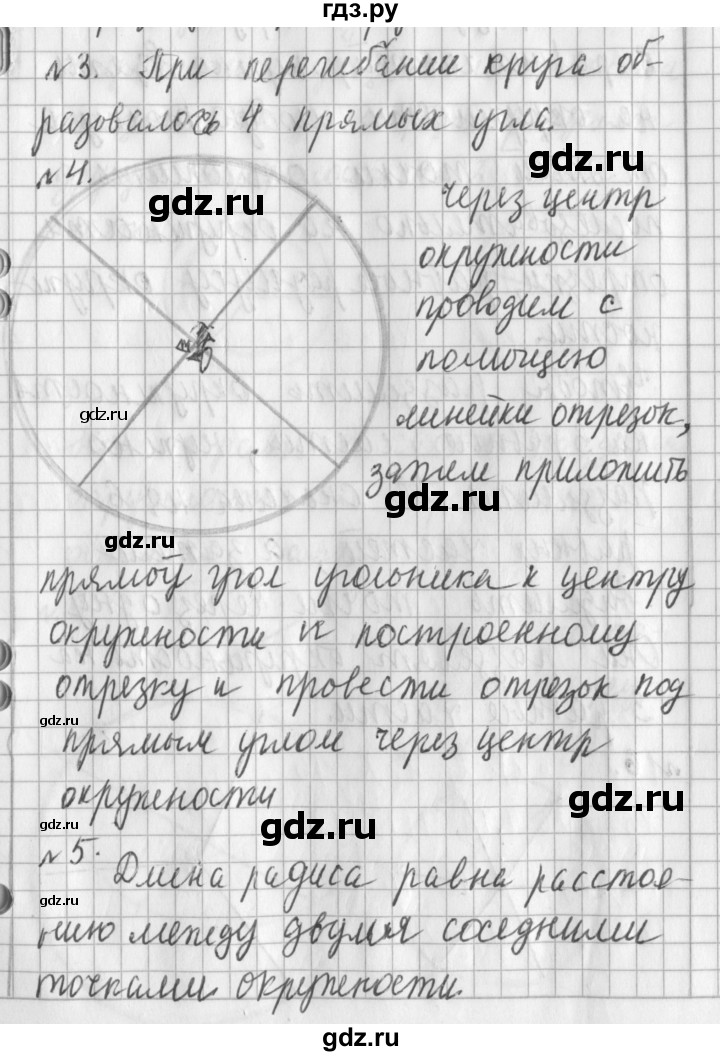 гдз.ру
№3. При перегибании круга об-
разовалось 4 прямых угла.
№4.
gdz.ru
gdz.ru
Через центр
окружности
проводим с
помощью
gdz.ru
линейки отрезок,
затем приложить
gdz.ru
gdz.ru
прямой угол угольника к центру
окружности и построенному
отрезку и провести отрезок под
gdz.ru
прямым углом через центр
окружности
gdz.ru
gdz.ru
gdz.ru
№5.
Длина радиса равна расстоя-
gdz.ru
нию между двумя соседними
gdz.ru
точками окружности.
gdz.ru